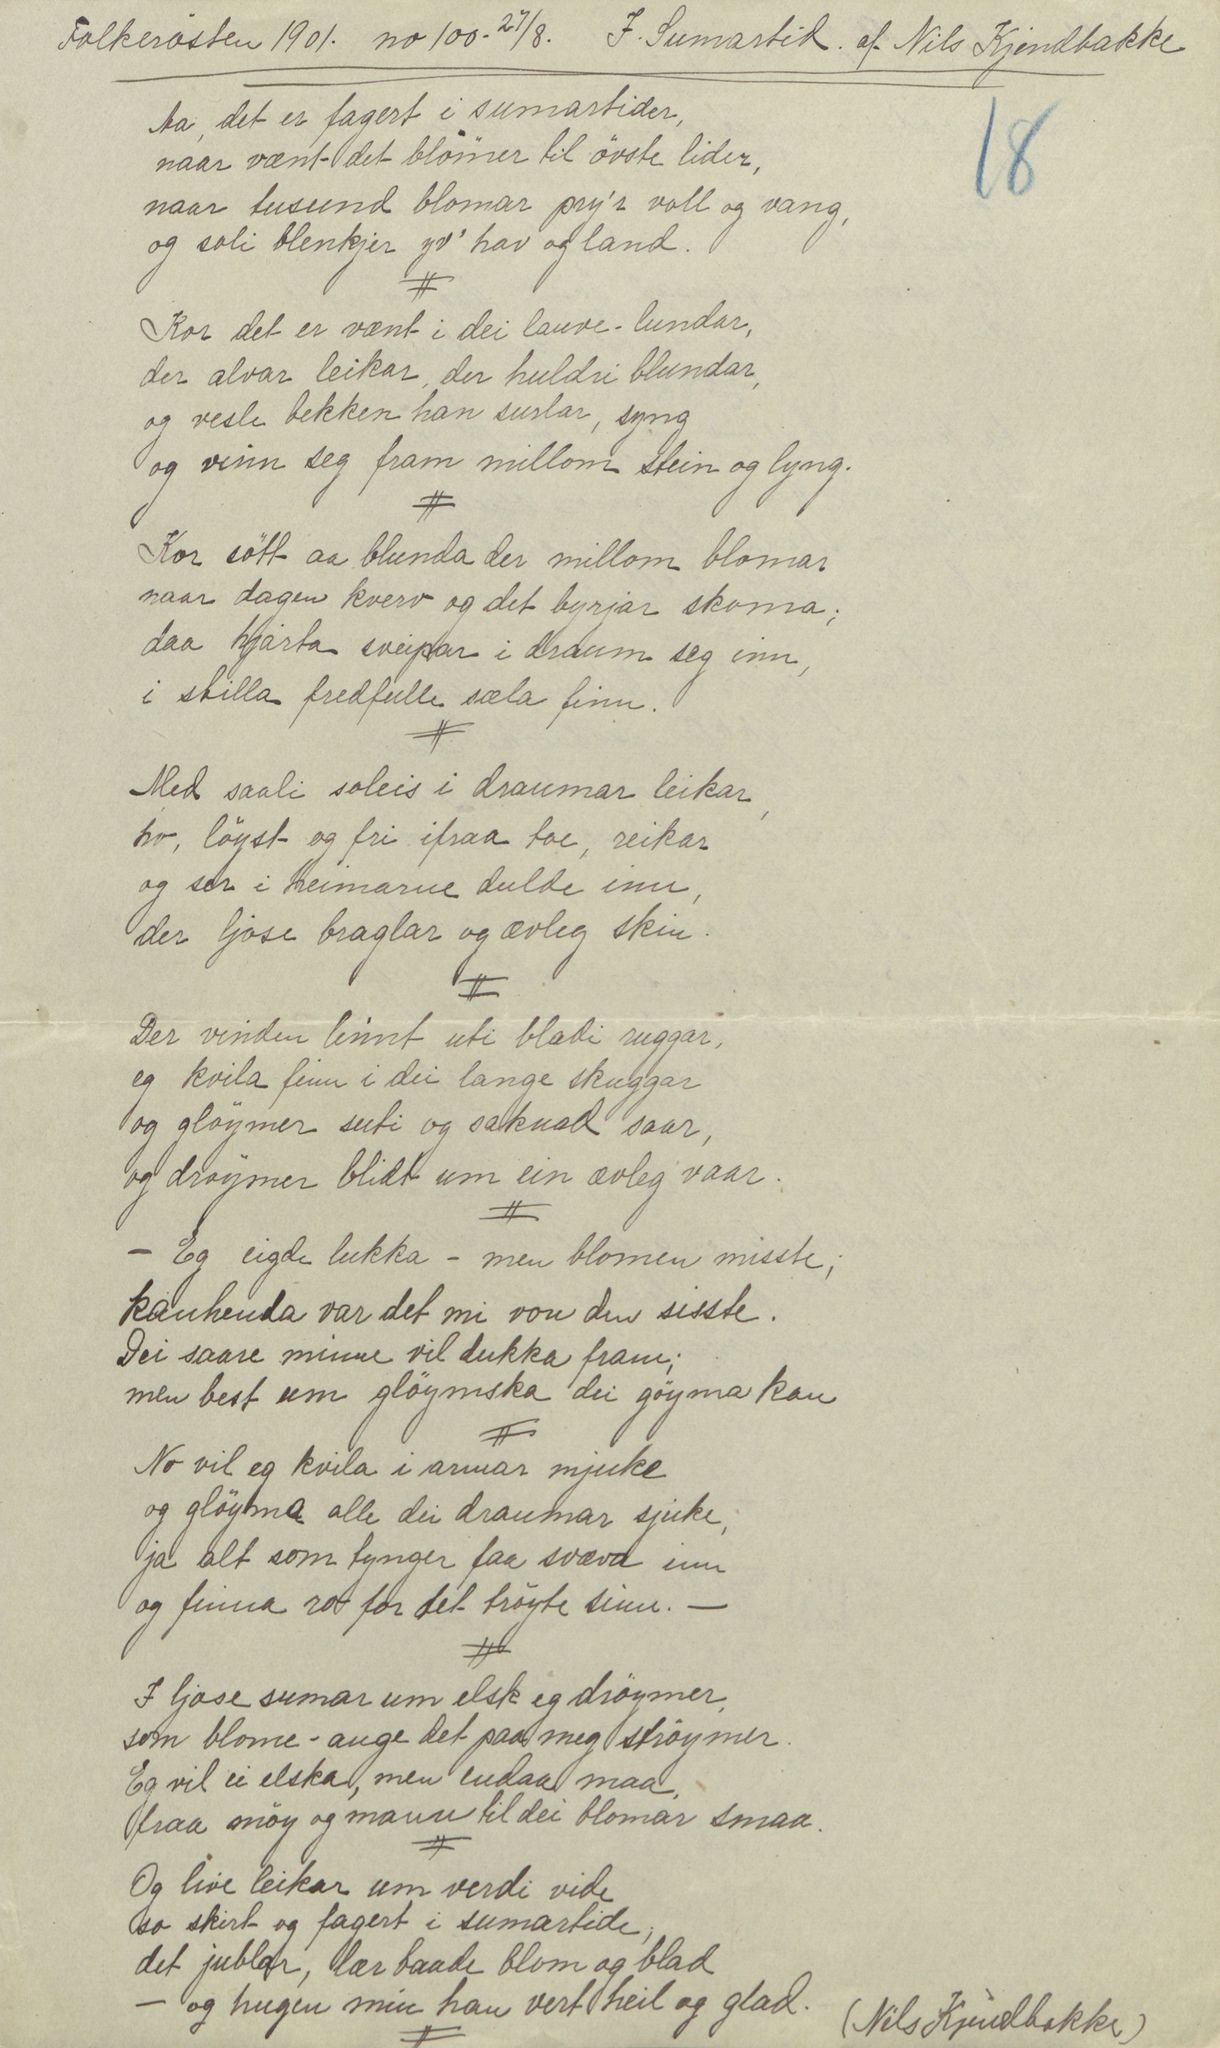 Folkerösten 1901. no 100- 27/8. I. Sumartid. af. Nils Kjendbakke
18
Aa, det er fagert i sumartider,
naar vænt det blömer til övste lider,
naar tusund blomar pry'r voll og vang,
og soli blenkjer yv' hav og land.
Kor det er vænt i dei lauve-lundar,
der alvar leikar, der huldri blundar,
og vesle bekken han surlar, syng
og vinn seg fram millom stein og lyng.
Kor sött aa blunda der millom blomar
naar dagen kverv og det byrjar skoma;
daa hjarta sveipar i draum seg inn,
i stilla fredfulle sæla finn.
Med saali soleis i draumar leikar,
ho, löyst og fri ifraa toe, reikar
og ser i heimarne dulde inn,
der ljose braglar og ævleg skin.
Der vinden linnt uti bladi ruggar,
eg kvila finn i dei lange skuggar
og glöymer suti og saknad saar,
og dröymer blidt um ein ævleg vaar.
- Eg eigde lukka - men blomen misste;
kanhenda var det mi von den sisste.
Dei saare minne vil dukka fram;
men best um glöymska dei göyma kan
No vil eg kvila i armar mjuke
og glöyma alle dei draumar sjuke,
ja alt som tynger faa svæva inn
og finna ro for det tröyte sinn. -
I ljose sumar um elsk eg dröymer,
som blome-auge det paa meg ströymer.
Eg vil ei elska, men endaa maa,
fraa möy og mann til dei blomar smaa.
Og live leikar um verdi vide
so skirt og fagert i sumartide,
det jublar, lær baade blom og blad
- og hugen min han vert heil og glad.
(Nils Kjendbakke)